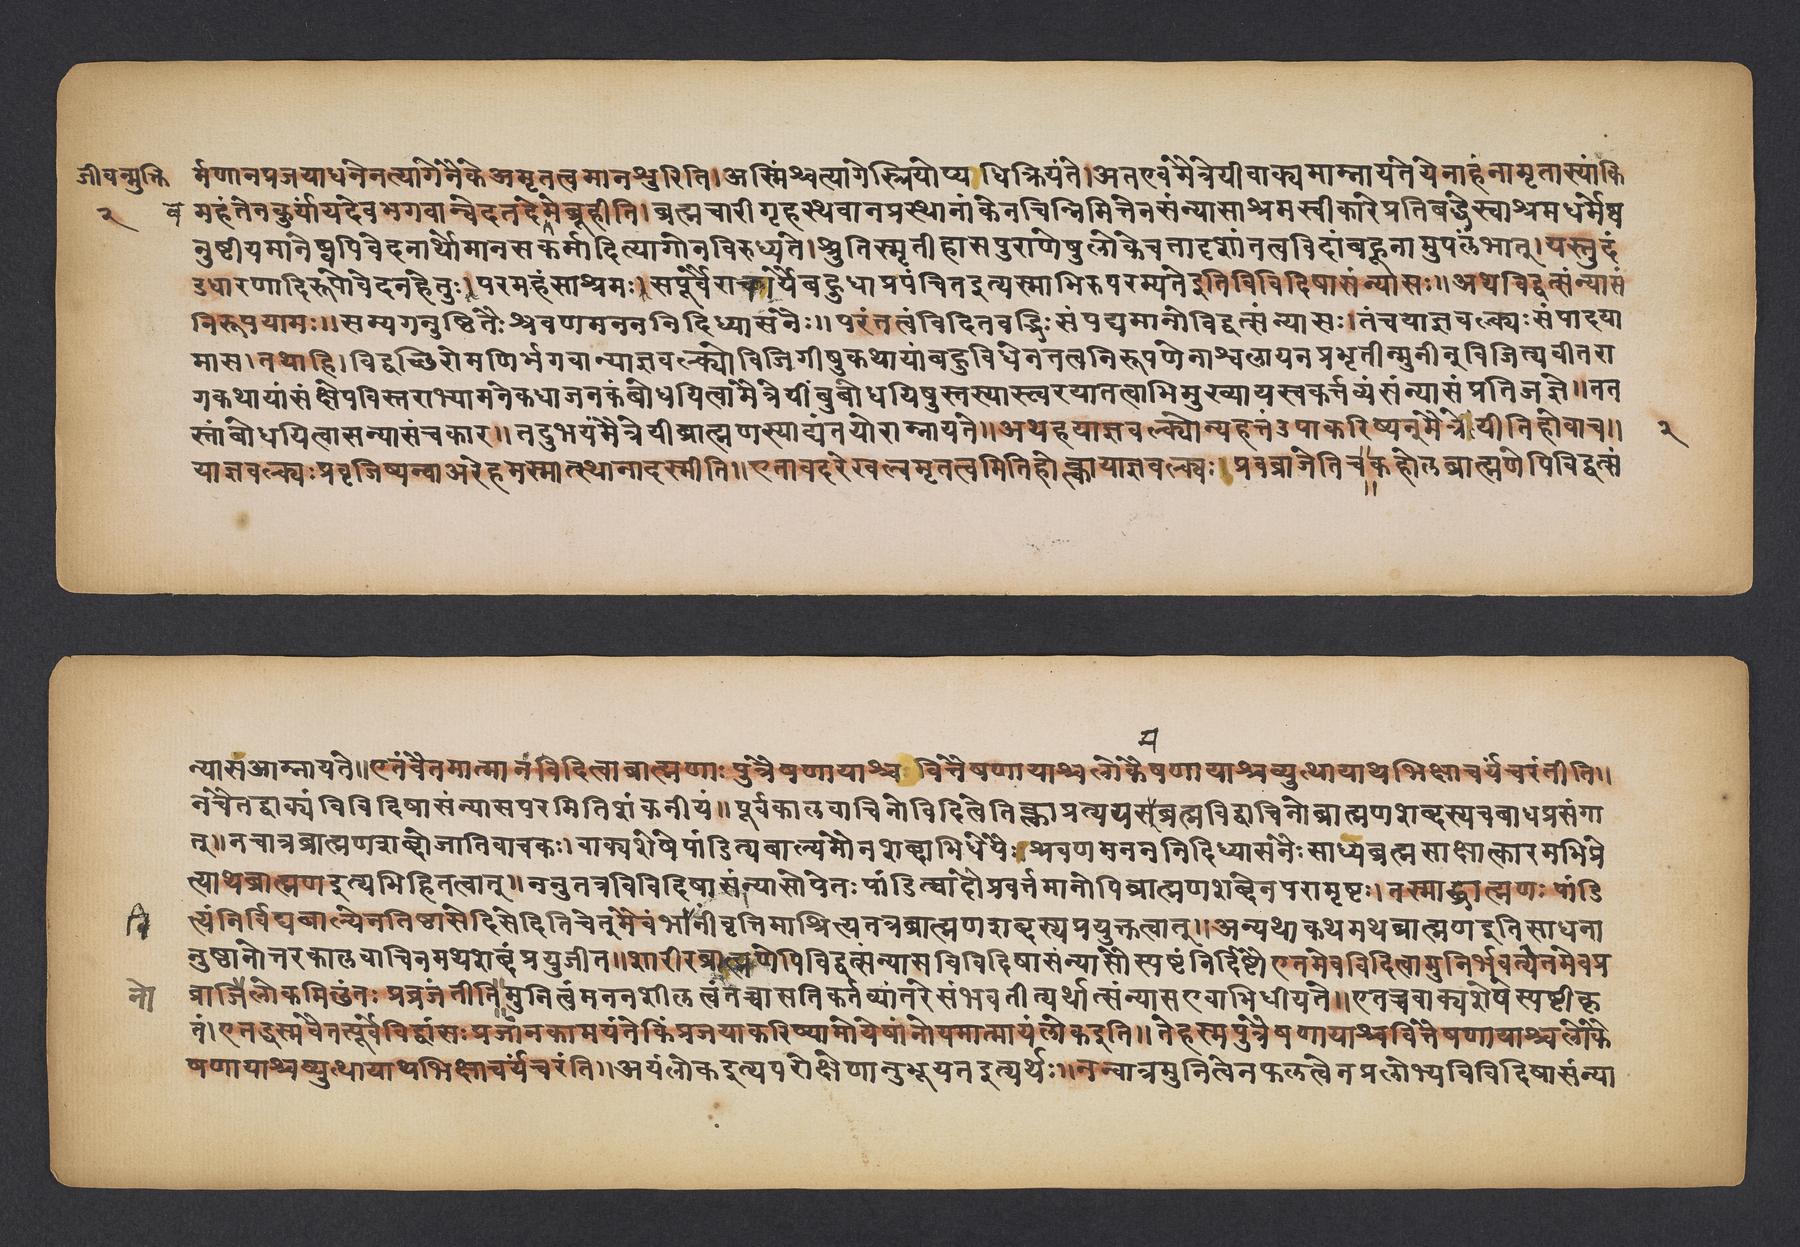 जीवन्मुक्ति
२
र्मणानप्रजयाधनेनत्यागेनैकेअमृतत्वमानशुरिति।अस्मिंश्चत्यागेस्त्रियोप्यधिक्रियंते।अतएवमैत्रेयीवाक्यमाम्नायतेयेनाहंनामृतास्यांकि
महंतेनकुर्यांयदेवभगवान्वेदतदेमेब्रूहीति।ब्रह्मचारीगृहस्थवानप्रस्थानांकेनचिन्निमित्तेनसंन्यासाश्रमस्वीकारेप्रतिबद्धेस्वाश्रमधर्मेष्व
नुष्ठीयमानेष्वपिवेदनार्थोमानसकर्मादित्यागोनविरुध्यते।श्रुतिस्मृतीहासपुराणेषुलोकेचतादृशांतत्वविदांबहूनामुपलंभात्।यस्तुदं
डधारणादिरूपोवेदनहेतुः।परमहंसाश्रमः।सपूर्वैराचार्यैर्बहुधाप्रपंचितइत्यस्माभिरुपरम्यतेइतिविविदिषासंन्यासः॥अथविद्वत्संन्यासं
निरूपयामः॥सम्यगनुष्ठितैःश्रवणमनननिदिध्यासनैः॥परंतत्वंविदितवद्भिःसंपद्यमानोविद्वत्संन्यासः।तंचयाज्ञवल्क्यःसंपादया
मास।तथाहि।विद्वच्छिरोमणिर्भगवान्याज्ञवल्क्योविजिगीषुकथायांबहुविधेनतत्वनिरूपणेनाश्वलायनप्रभृतीन्मुनीन्विजित्यवीतरा
गकथायांसंक्षेपविस्तराभ्यामनेकधाजनकंबोधयित्वामैत्रेयींबुबोधयिषुस्तस्यास्त्वरयातत्वाभिमुख्यायस्वकर्त्तव्यंसंन्यासंप्रतिजज्ञे॥तत
स्तांबोधयित्वासंन्यासंचकार॥तदुभयंमैत्रेयीब्राह्मणस्याद्यंतयोराम्नायते॥अथहयाज्ञवल्क्योन्यद्वृत्तंउपाकरिष्यन्मैत्रेयीतिहोवाच॥ २
याज्ञवल्क्यःप्रवृजिष्यन्वाअरेहमस्मात्स्थानादस्मीति॥एतावदरेखल्वमृतत्वमितिहोक्त्वायाज्ञवल्क्यः।प्रवव्राजेतिचकहोलब्राह्मणेपिविद्वत्सं
न्यासआम्नायते॥एतंवैतमात्मानंविदित्वाब्राह्मणाःपुत्रैषणायाश्चवित्तैषणायाश्चलोकैषणायाश्चव्युत्थायाथभिक्षाचर्यंचरंतीति॥
नचैतद्वाक्यंविविदिषासंन्यासपरमितिशंकनीयं॥पूर्वकालवाचिनोविदित्वेतिक्त्वाप्रत्ययस्यब्रह्मविद्वाचिनोब्राह्मणशब्दस्यचबाधप्रसंगा
त्॥नचात्रब्राह्मणशब्दोजातिवाचकः।वाक्यशेषेपांडित्यबाल्यमौनशब्दाभिधेयैःश्रवणमनननिदिध्यासनैःसाध्यंब्रह्मसाक्षात्कारमभिप्रे
त्याथब्राह्मणइत्यभिहितत्वात्॥ननुतत्रविविदिषासंन्यासोपेतःपांडित्यादौप्रवर्त्तमानोपिब्राह्मणशब्देनपरामृष्टः।तस्माद्ब्राह्मणःपांडि
त्यंनिर्विद्यबाल्येनतिष्ठासेदितिचेत्मैवंभाविनींवृत्तिमाश्रित्यतत्रब्राह्मणशब्दस्यप्रयुक्तत्वात्॥अन्यथाकथमथब्राह्मणइतिसाधना
नुष्ठानोत्तरकालवाचिनमथशब्दंप्रयुंजीत॥शारीरब्राह्मणेपिविद्वत्संन्यासविविदिषासंन्यासौस्पष्टंनिर्दिष्टौएतमेवविदित्वामुनिर्भवत्येतमेवप्र
व्राजिनोलोकमिच्छंतःप्रव्रजंतीतिमुनित्वंमननशीलत्वंतच्चासतिकर्तव्यांतरेसंभवतीत्यर्थात्संन्यासएवाभिधीयते॥एतच्चवाक्यशेषेस्पष्टीकृ
तं।एतद्धस्मवैतत्पूर्वेविद्वांसःप्रजांनकामयंतेकिंप्रजयाकरिष्यामोयेषांनोयमात्मायंलोकइति॥तेहस्मपुत्रैषणायाश्चवित्तैषणायाश्चलोकै
षणायाश्चव्युत्थायाथभिक्षाचर्यंचरंति॥अयंलोकइत्यपरोक्षेणानुभूयतइत्यर्थः॥नन्वात्रमुनित्वेनफलत्वेनप्रलोभ्यविविदिषासंन्या